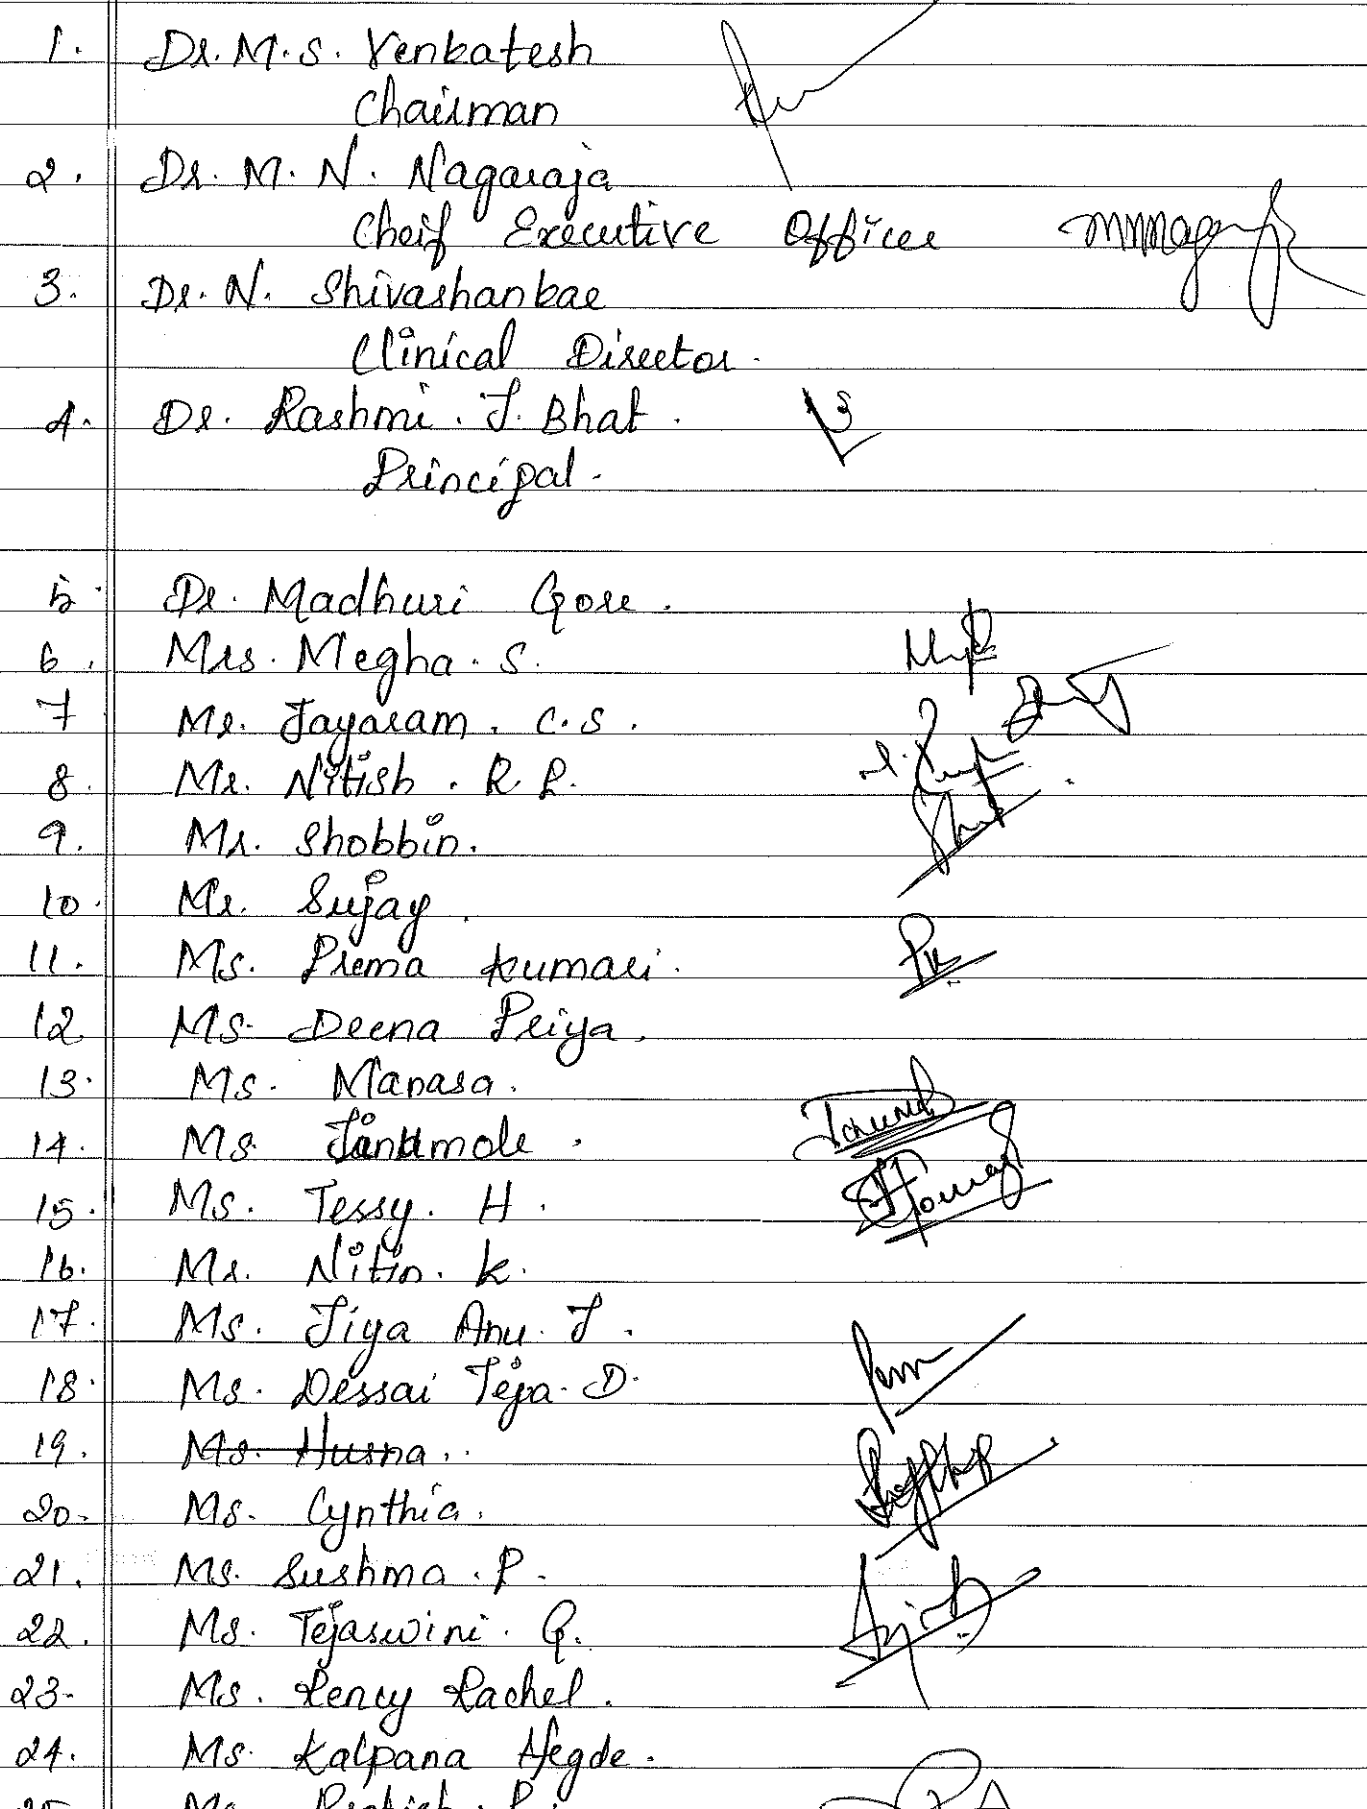 1. Dr. M.S. Venkatesh
Chairman
2. Dr. M. N. Nagaraja
Cheif Executive Officer
3. Dr. N. Shivashankar
Clinical Director.
4. Dr. Rashmi. J. Bhat.
Principal.
5. Dr. Madhuri Gore.
6. Mrs. Megha. S.
7 Mr. Jayaram. C.S.
8. Mr. Nitish. R. P.
9. Mr. Shobbin.
10. Mr. Sujay.
11. Ms. Prema Kumari.
12 Ms. Deena Priya.
13. Ms. Manasa.
14. Ms.
15. Ms. Tessy. H.
16. Mr. Nitin. K.
17. Ms. Jiya Anu. J.
18. Ms. Dessai Teja. D.
19. Ms. Husna.
20. Ms. Cynthia.
21. Ms. Sushma. P.
22. Ms. Tejaswini. G.
23. Ms. Rency Rachel.
24. Ms. Kalpana Hegde.